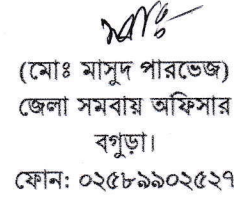 (মোঃ মাসুদ পারভেজ)
জেলা সমবায় অফিসার
বগুড়া।
ফোন: ০২৫৮৯৯০২৫২৭